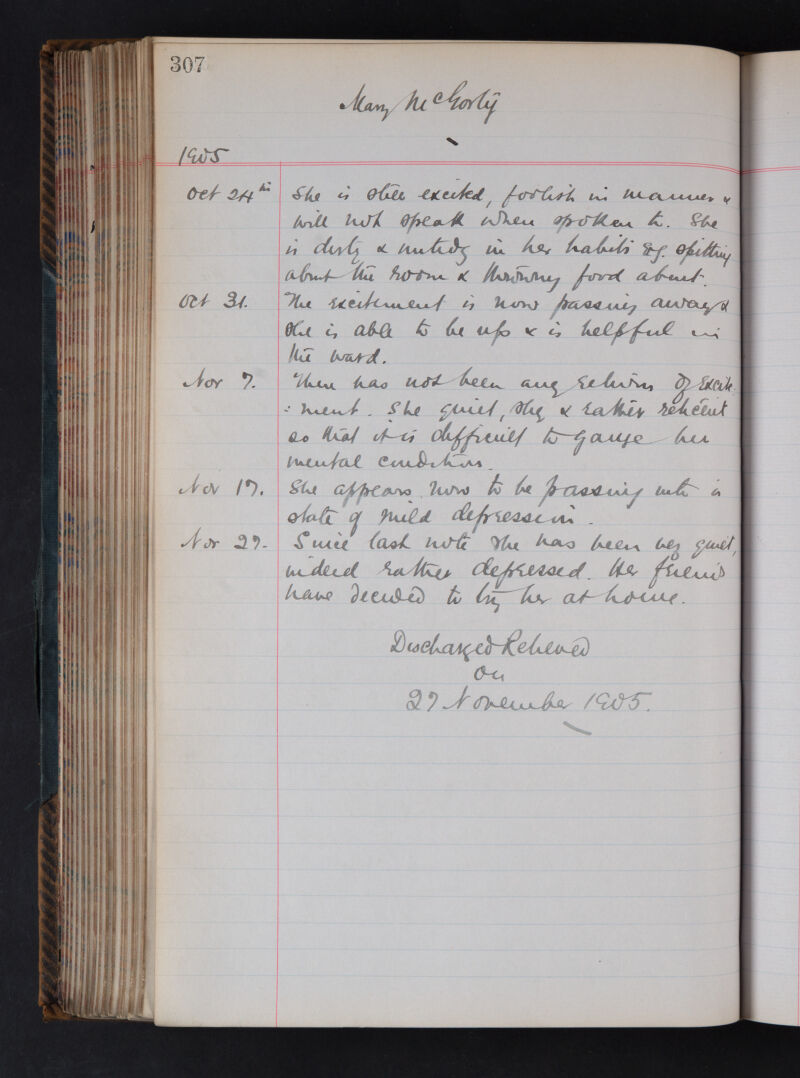 307
Mary McGorty
1905
Oct 24th She is still excited, foolish in manner &
will not speak when spoken to. She
is dirty & untidy in her habits eg. spitting
about the room & throwing food about.
Oct 31. The excitement is now passing away &
she is able to be up & is helpful in
the ward.
Nov 7. There has not been any return of excite
:ment. She quiet, shy & rather reticent
so that it is difficult to gauge her
mental condition.
Nov 17. She appears now to be passing into a
state of mild depression.
Nov 27. Since last note she has been very quiet,
indeed rather depressed. Her friends
have decided to try her at home.
Discharged Relieved
on
27 November 1905.